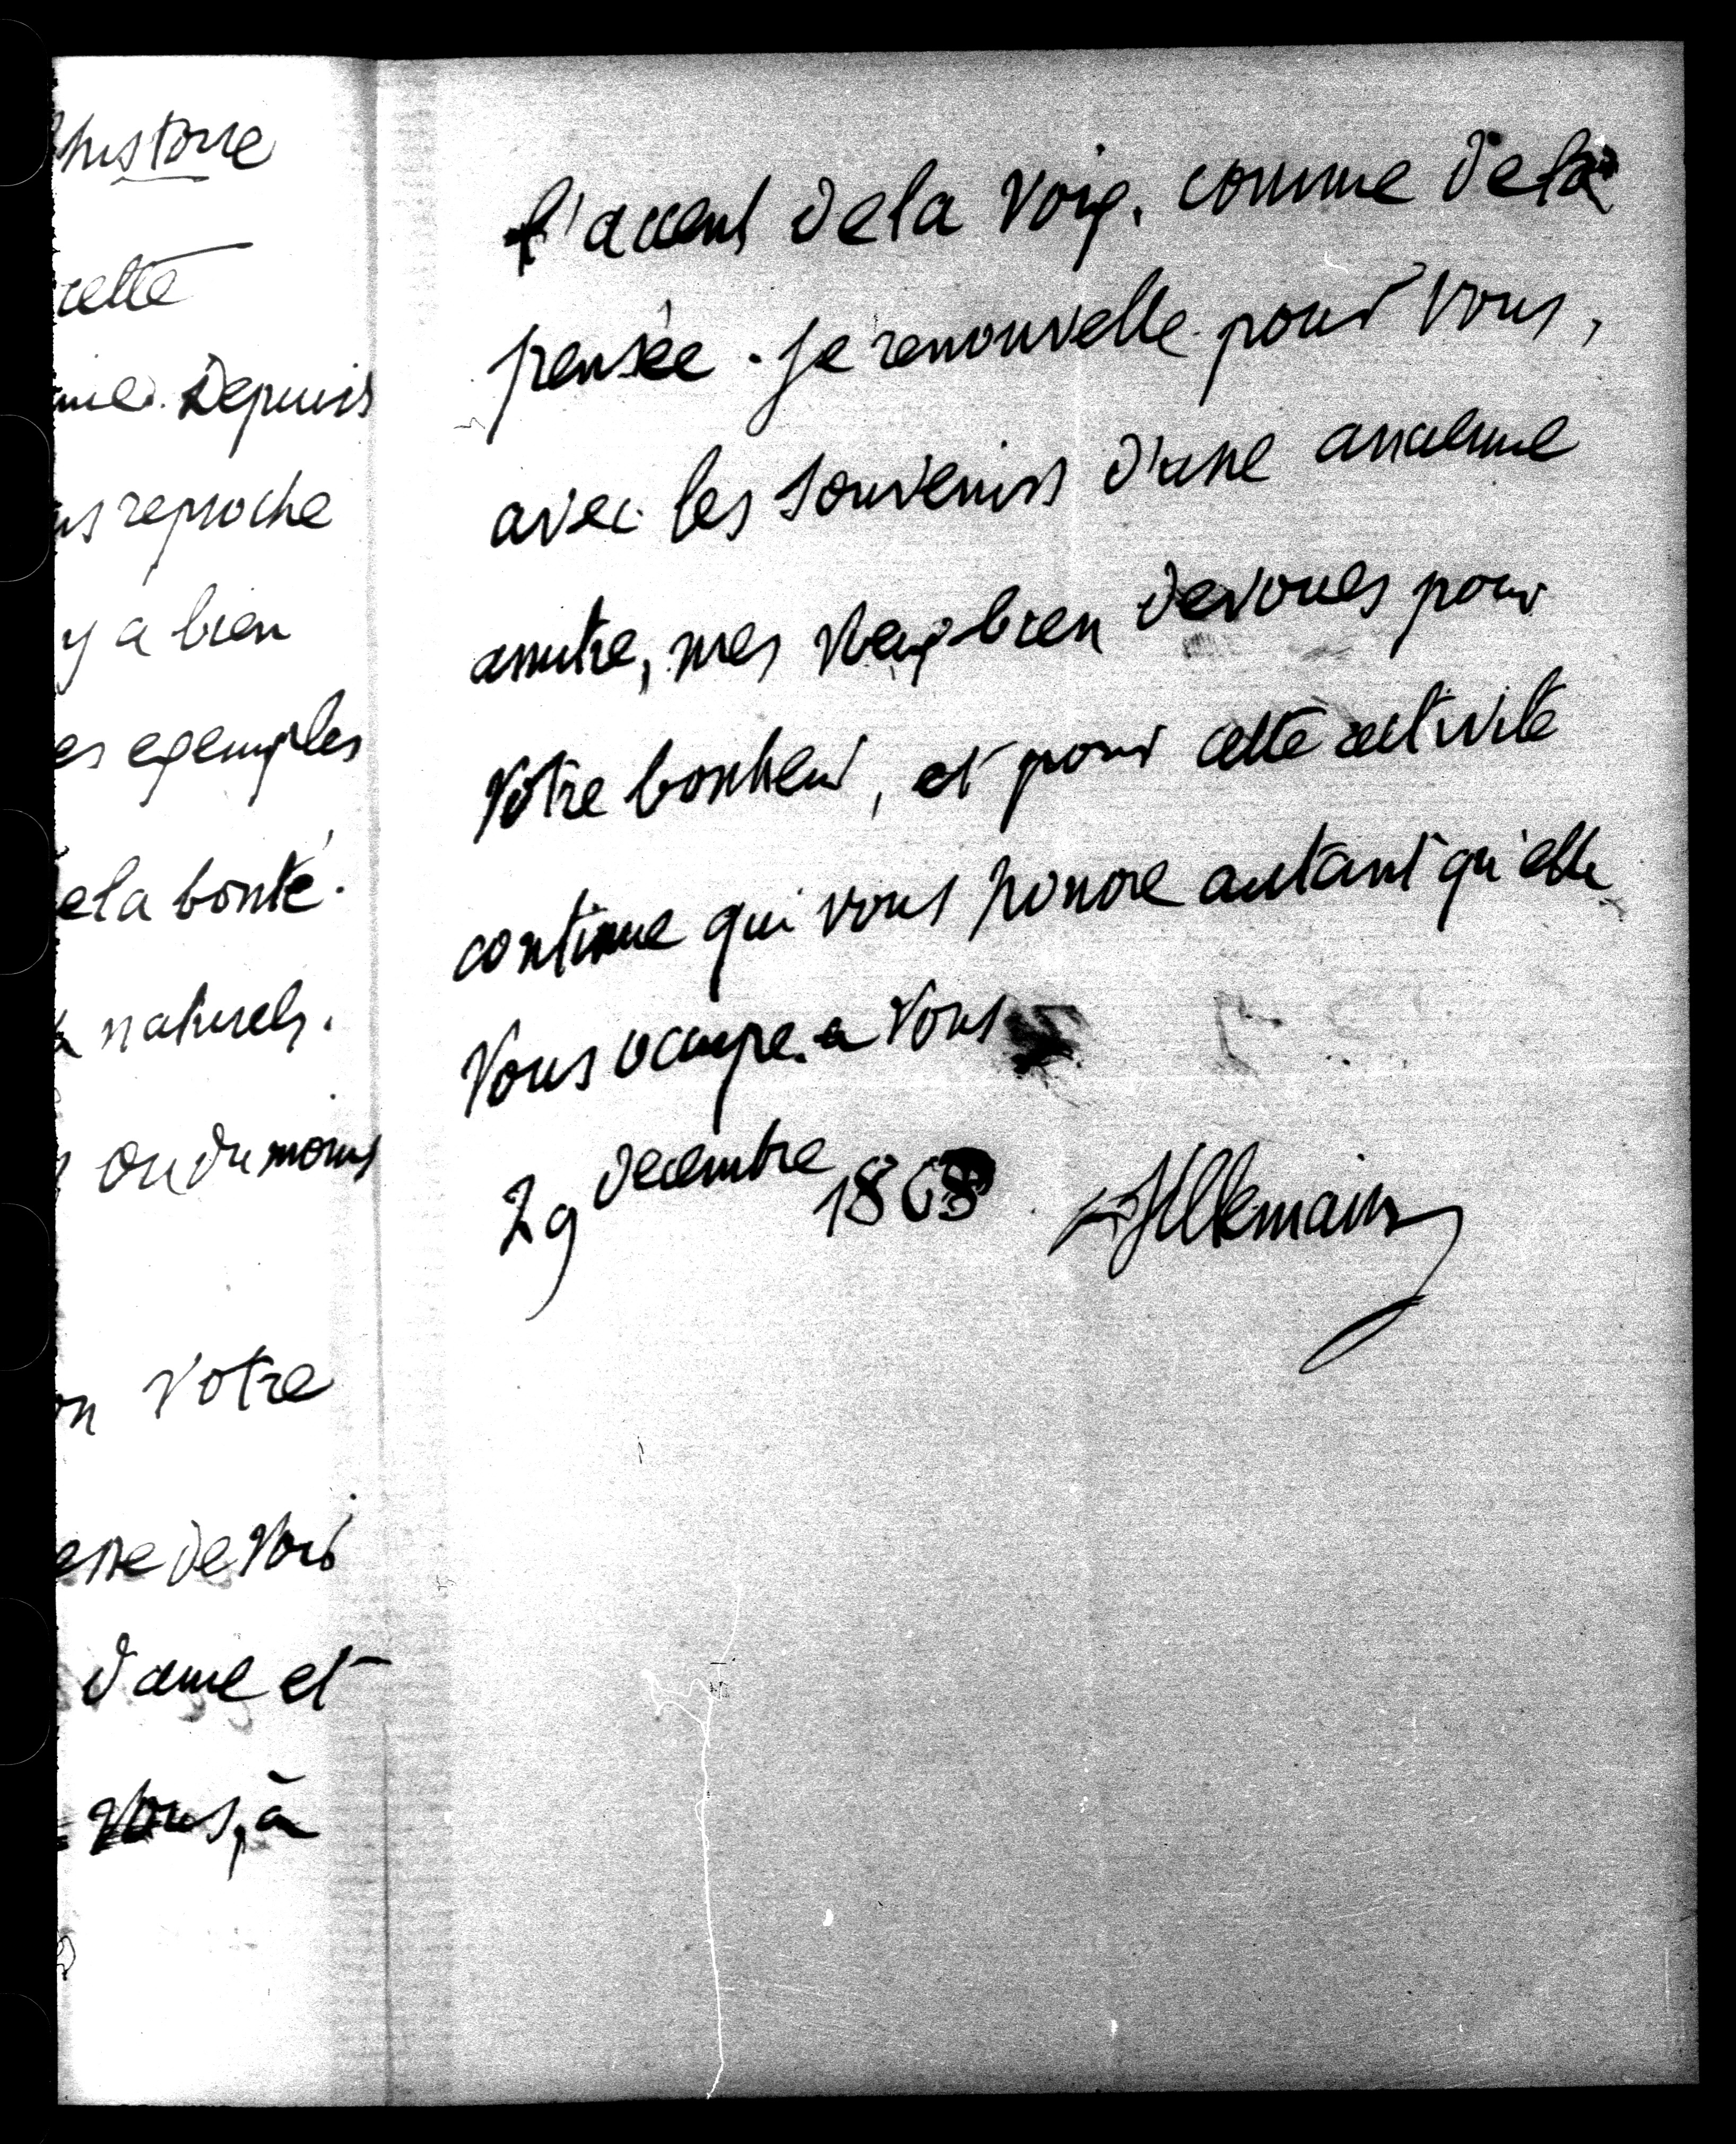 histoire
cette
Depuis
reproche
y a bien
es exemples
de la bonté.
naturels.
ou du moins
votre
de voir
d'ame et
vous, à
l'accent de la voix, comme de la
pensée. je renouvelle pour vous,
avec les souvenirs d'une ancienne
amitie, mes vœux bien devoues pour
votre bonheur, et pour cette activite
continue qui vous honore autant qu'elle
vous occupe. a vous
29 decembre 1868 Villemain